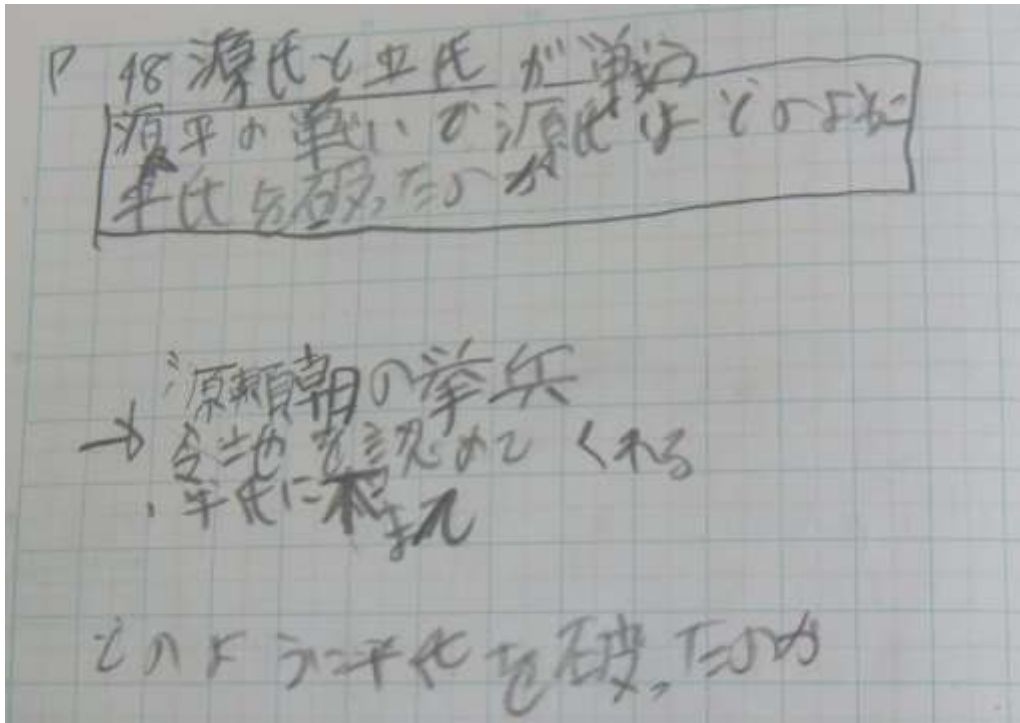 P 48 源氏と平氏が戦う
源平の戦いで源氏はどのように
平氏を破ったのか
源頼朝の挙兵
→ 領地を認めてくれる
・平氏に不
どのように平氏を破ったのか